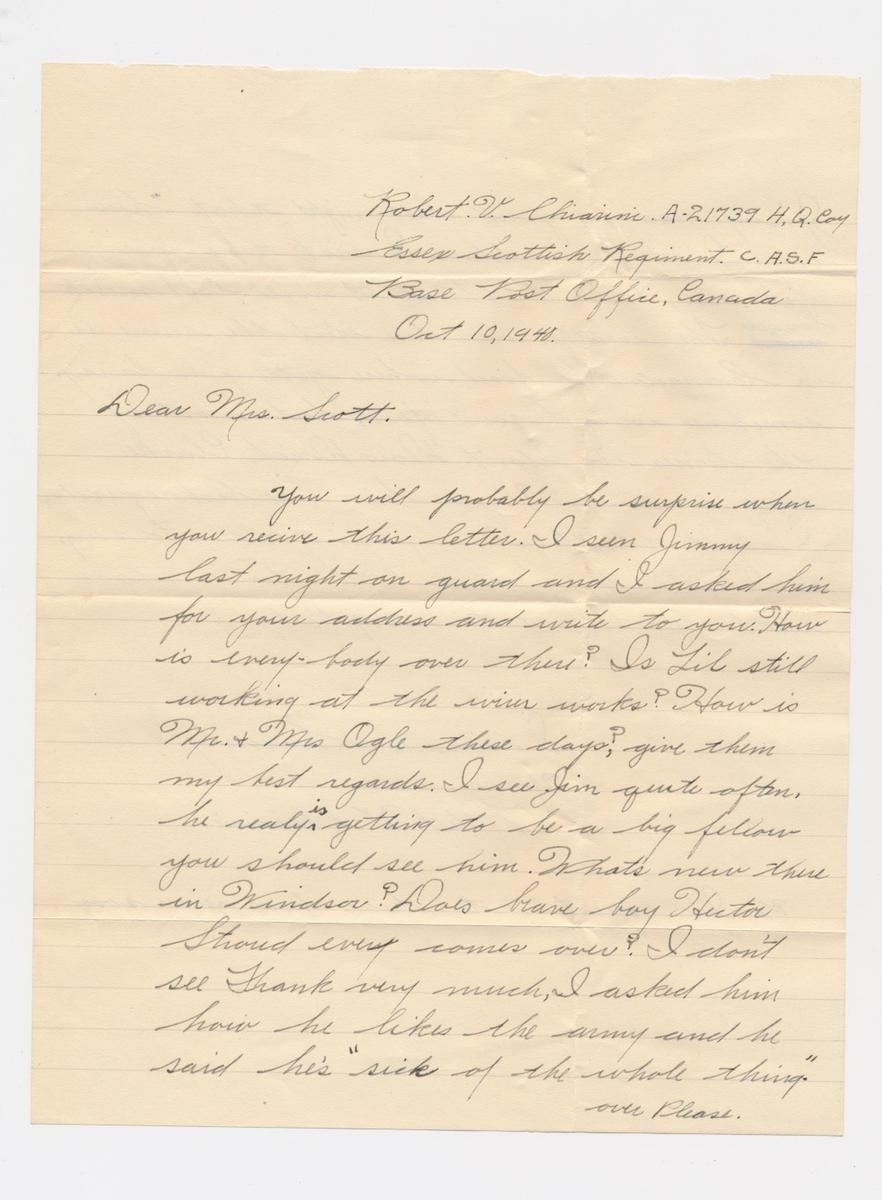 Robert. V. Chiarini. A-21739 H, Q. Coy
Essex Scottish Regiment. C. A. S. F
Base Post Office, Canada
Oct 10, 1940.
Dear Mrs. Scott.
You will probably be surprise when
you recive this letter. I seen Jimmy
last night on guard and I asked him
for your address and write to you. How
is every-body over there? Is Lil still
working at the wire works? How is
Mr. & Mrs Ogle these days?, give them
my best regards. I see Jim quite often,
he realy is getting to be a big fellow
you should see him. Whats new there
in Windsor? Does brave boy Hector
Stroud every comes over? I don't
see Frank very much, I asked him
how he likes the army and he
said he's "sick of the whole thing"
over Please.